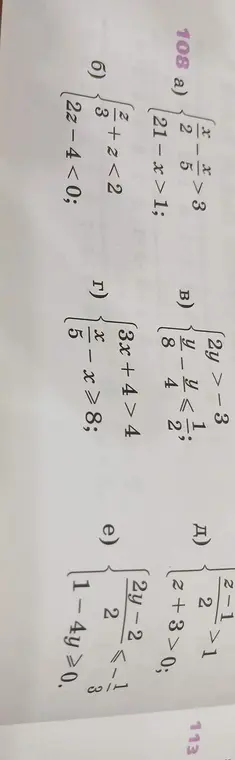 108 а) { x/2 − x/5 > 3
21 − x > 1;
б) { z/3 + z < 2
2z − 4 < 0;
в) { 2y > −3
y/8 − y/4 ≤ 1/2;
г) { 3x + 4 > 4
x/5 − x ⩾ 8;
д) { (z − 1)/2 > 1
z + 3 > 0;
е) { (2y − 2)/2 ⩽ −1/3
1 − 4y ⩾ 0.
113